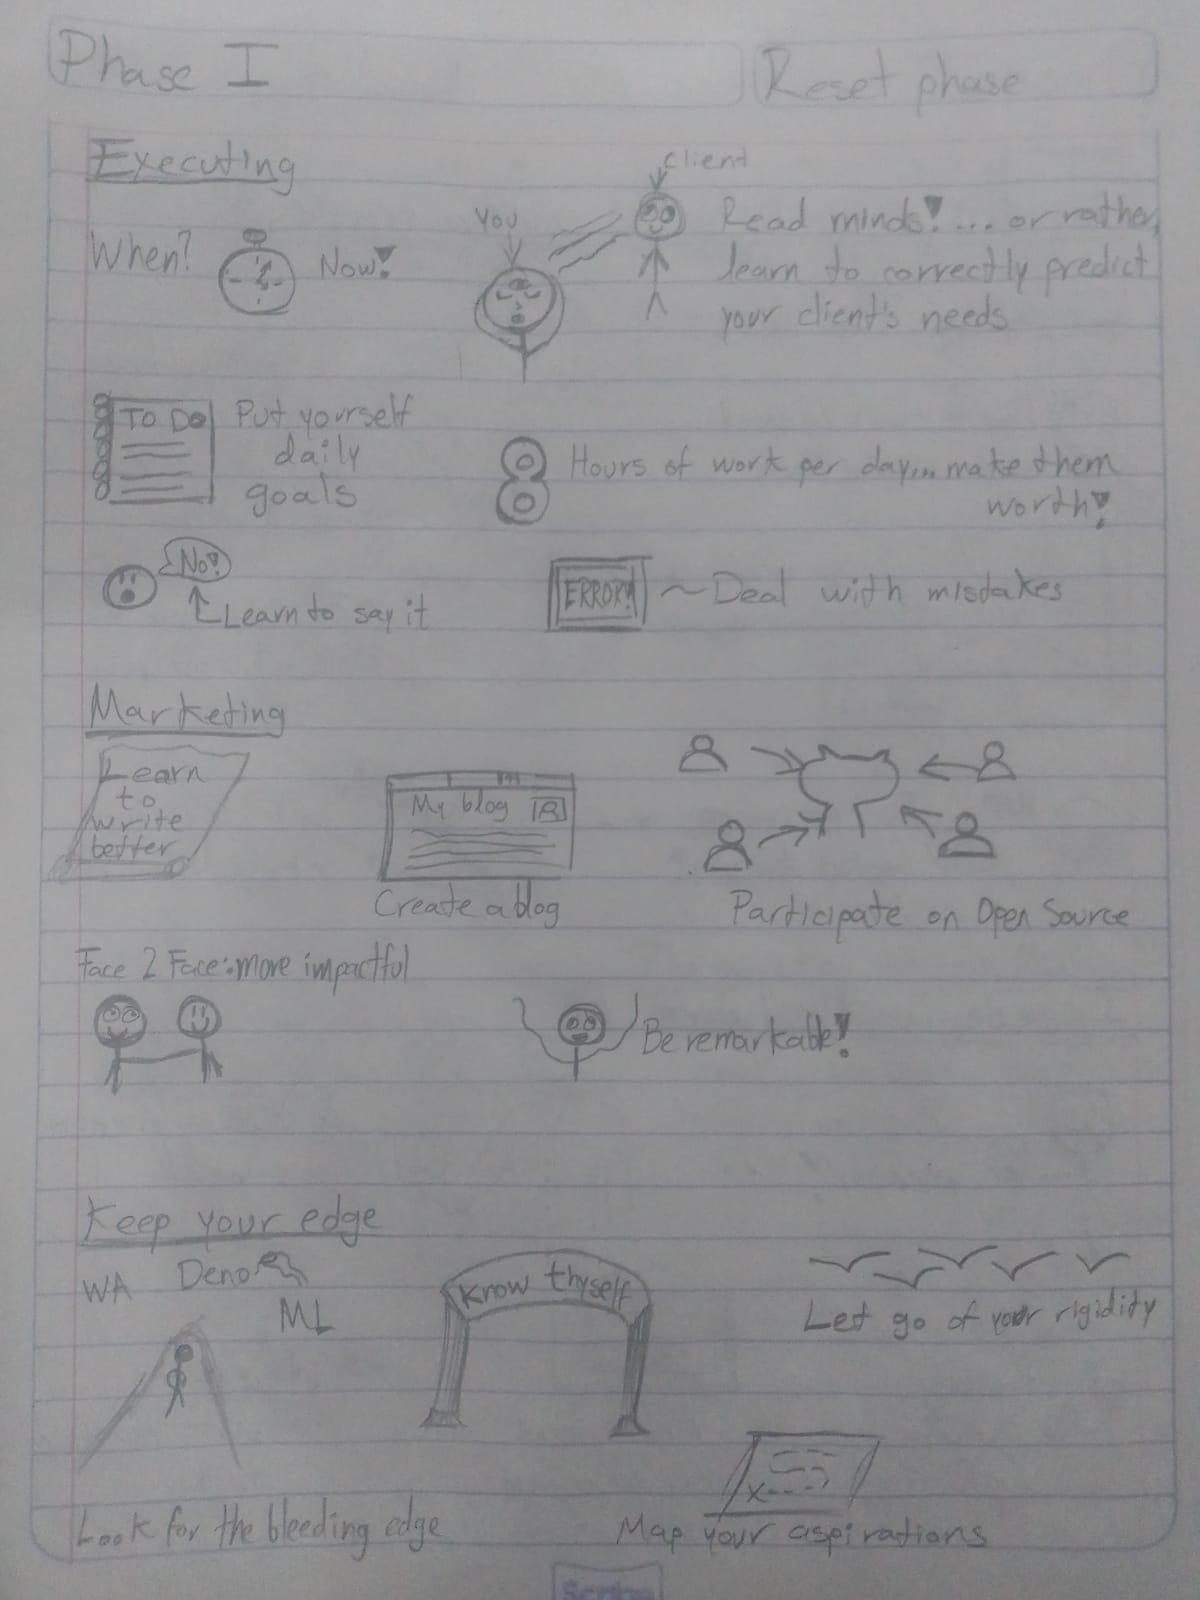 Phase I
Reset phase
Executing
When?
Now!
You
Client
Read minds! ... or rather,
learn to correctly predict
your client's needs
TO DO
Put yourself
daily
goals
8 Hours of work per day... make them
worth!
No!
Learn to say it
ERROR!
~ Deal with mistakes
Marketing
Learn
to
write
better
My blog
Create a blog
Participate on Open Source
Face 2 Face: more impactful
Be remarkable!
Keep your edge
WA
Deno
ML
Look for the bleeding edge
Know thyself
Let go of your rigidity
X
Map your aspirations
Scribe